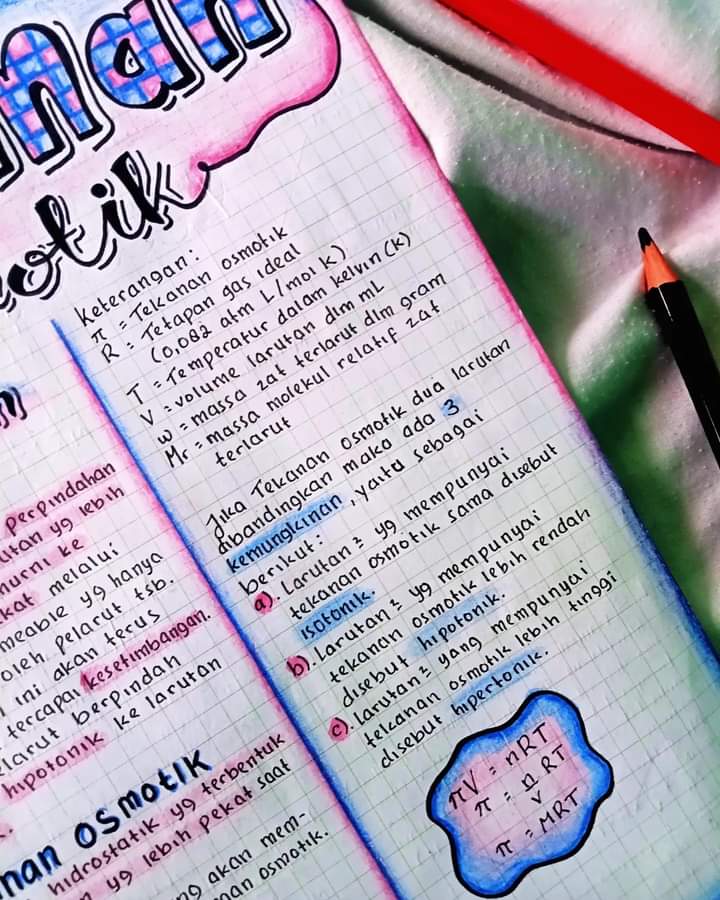 man
otik
perpindahan
utan yg lebih
murni ke
kat melalui
meable yg hanya
oleh pelarut tsb.
ini akan terus
tercapai kesetimbangan.
elarut berpindah
hipotonik ke larutan
man osmotik
hidrostatik yg terbentuk
n yg lebih pekat saat
ng akan mem-
nan osmotik.
Keterangan:
π = Tekanan osmotik
R = Tetapan gas ideal
(0,082 atm L/mol K)
T = Temperatur dalam kelvin (K)
V = volume larutan dlm mL
w = massa zat terlarut dlm gram
Mr = massa molekul relatif zat
terlarut
Jika Tekanan osmotik dua larutan
dibandingkan maka ada 3
kemungkinan, yaitu sebagai
berikut:
a). Larutan² yg mempunyai
tekanan osmotik sama disebut
isotonik.
b). Larutan² yg mempunyai
tekanan osmotik lebih rendah
disebut hipotonik.
c). Larutan² yang mempunyai
tekanan osmotik lebih tinggi
disebut hipertonik.
πV = nRT
π = n/V RT
π = MRT